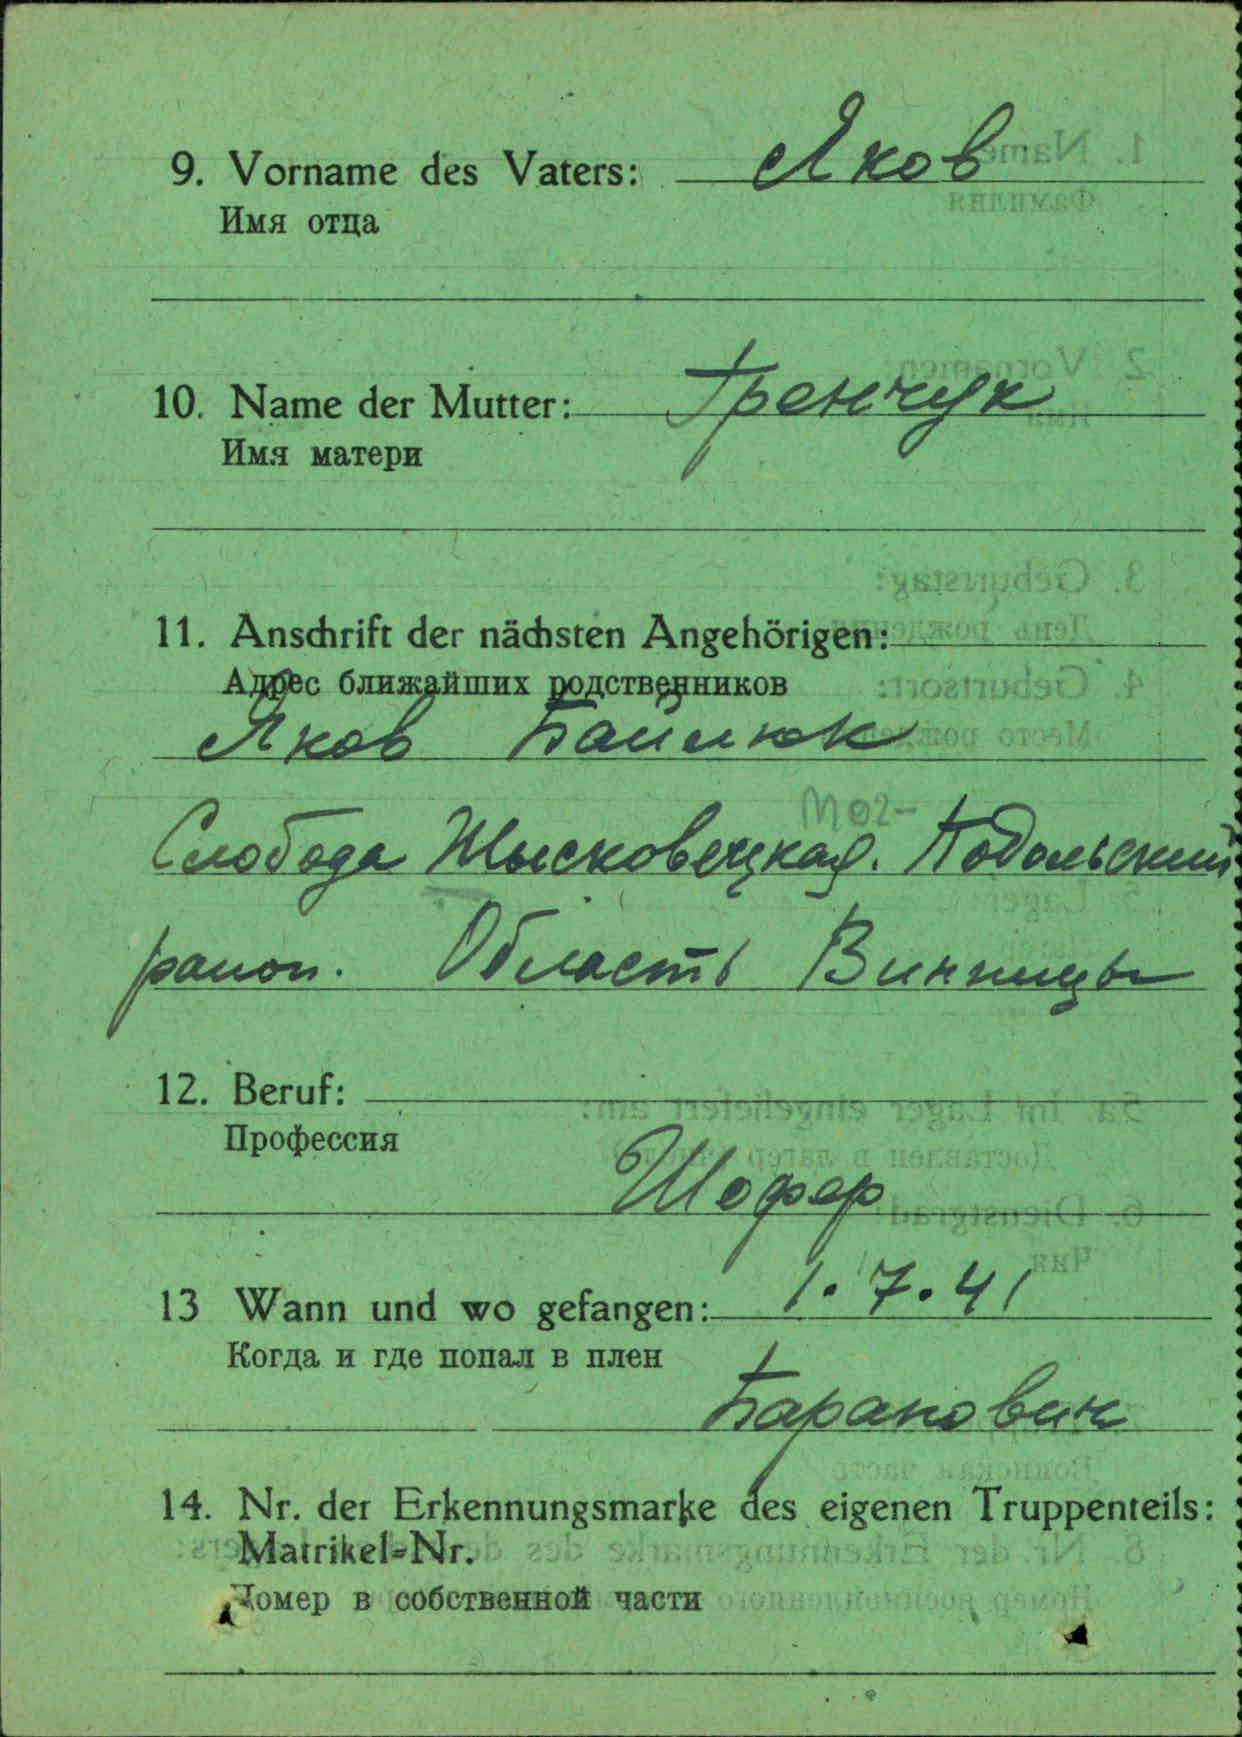 9. Vorname des Vaters: Яков
Имя отца
10. Name der Mutter: Гренчук
Имя матери
11. Anschrift der nächsten Angehörigen:
Адрес ближайших родственников
Яков Байлюк
Слобода Подольский
район. Область Винницы
12. Beruf:
Профессия
Шофер
13 Wann und wo gefangen: 1.7.41
Когда и где попал в плен
Баранович
14. Nr. der Erkennungsmarke des eigenen Truppenteils:
Matrikel-Nr.
Номер в собственной части